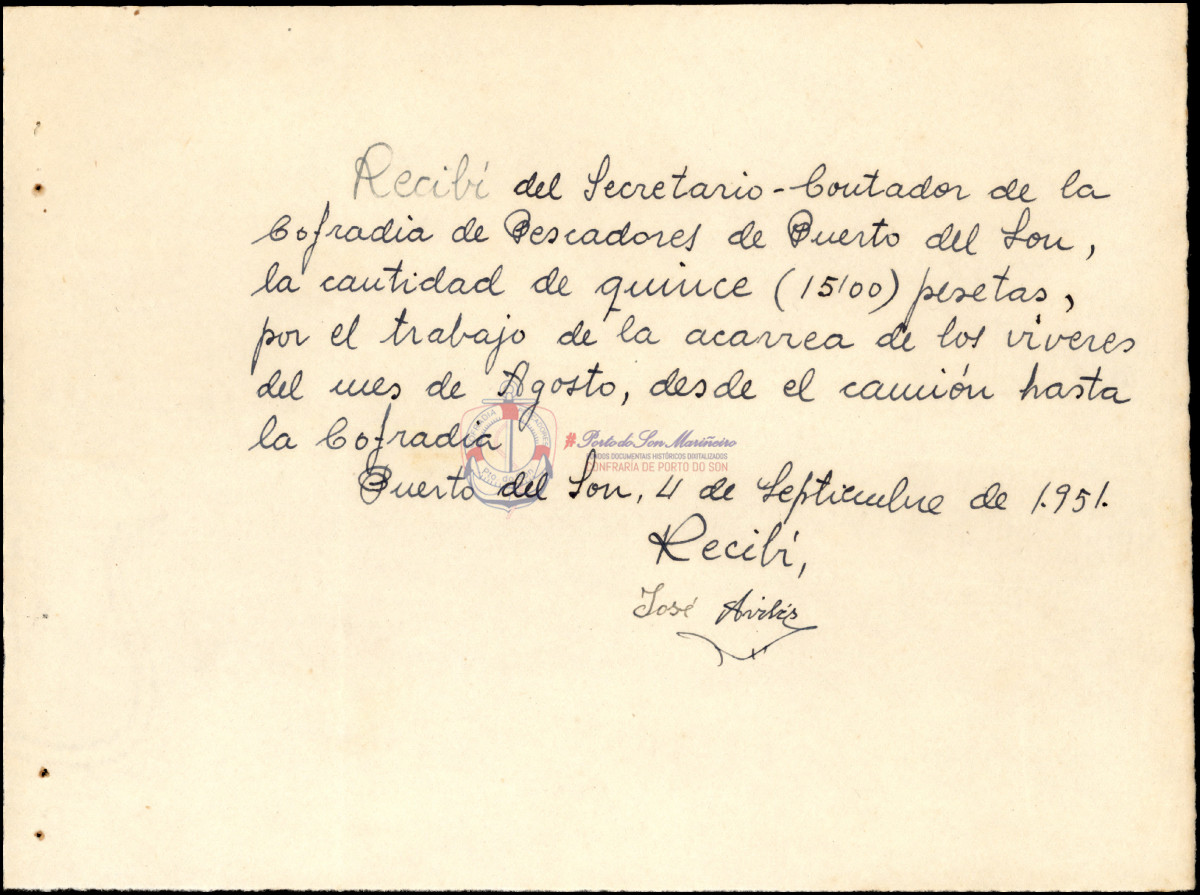 Recibí del Secretario-Contador de la
Cofradia de Pescadores de Puerto del Son,
la cantidad de quince (15'00) pesetas,
por el trabajo de la acarrea de los viveres
del mes de Agosto, desde el camión hasta
la Cofradia
#Porto do Son Mariñeiro
FONDOS DOCUMENTAIS HISTÓRICOS DIXITALIZADOS
CONFRARÍA DE PORTO DO SON
Puerto del Son, 4 de Septiembre de 1.951.
Recibí,
José